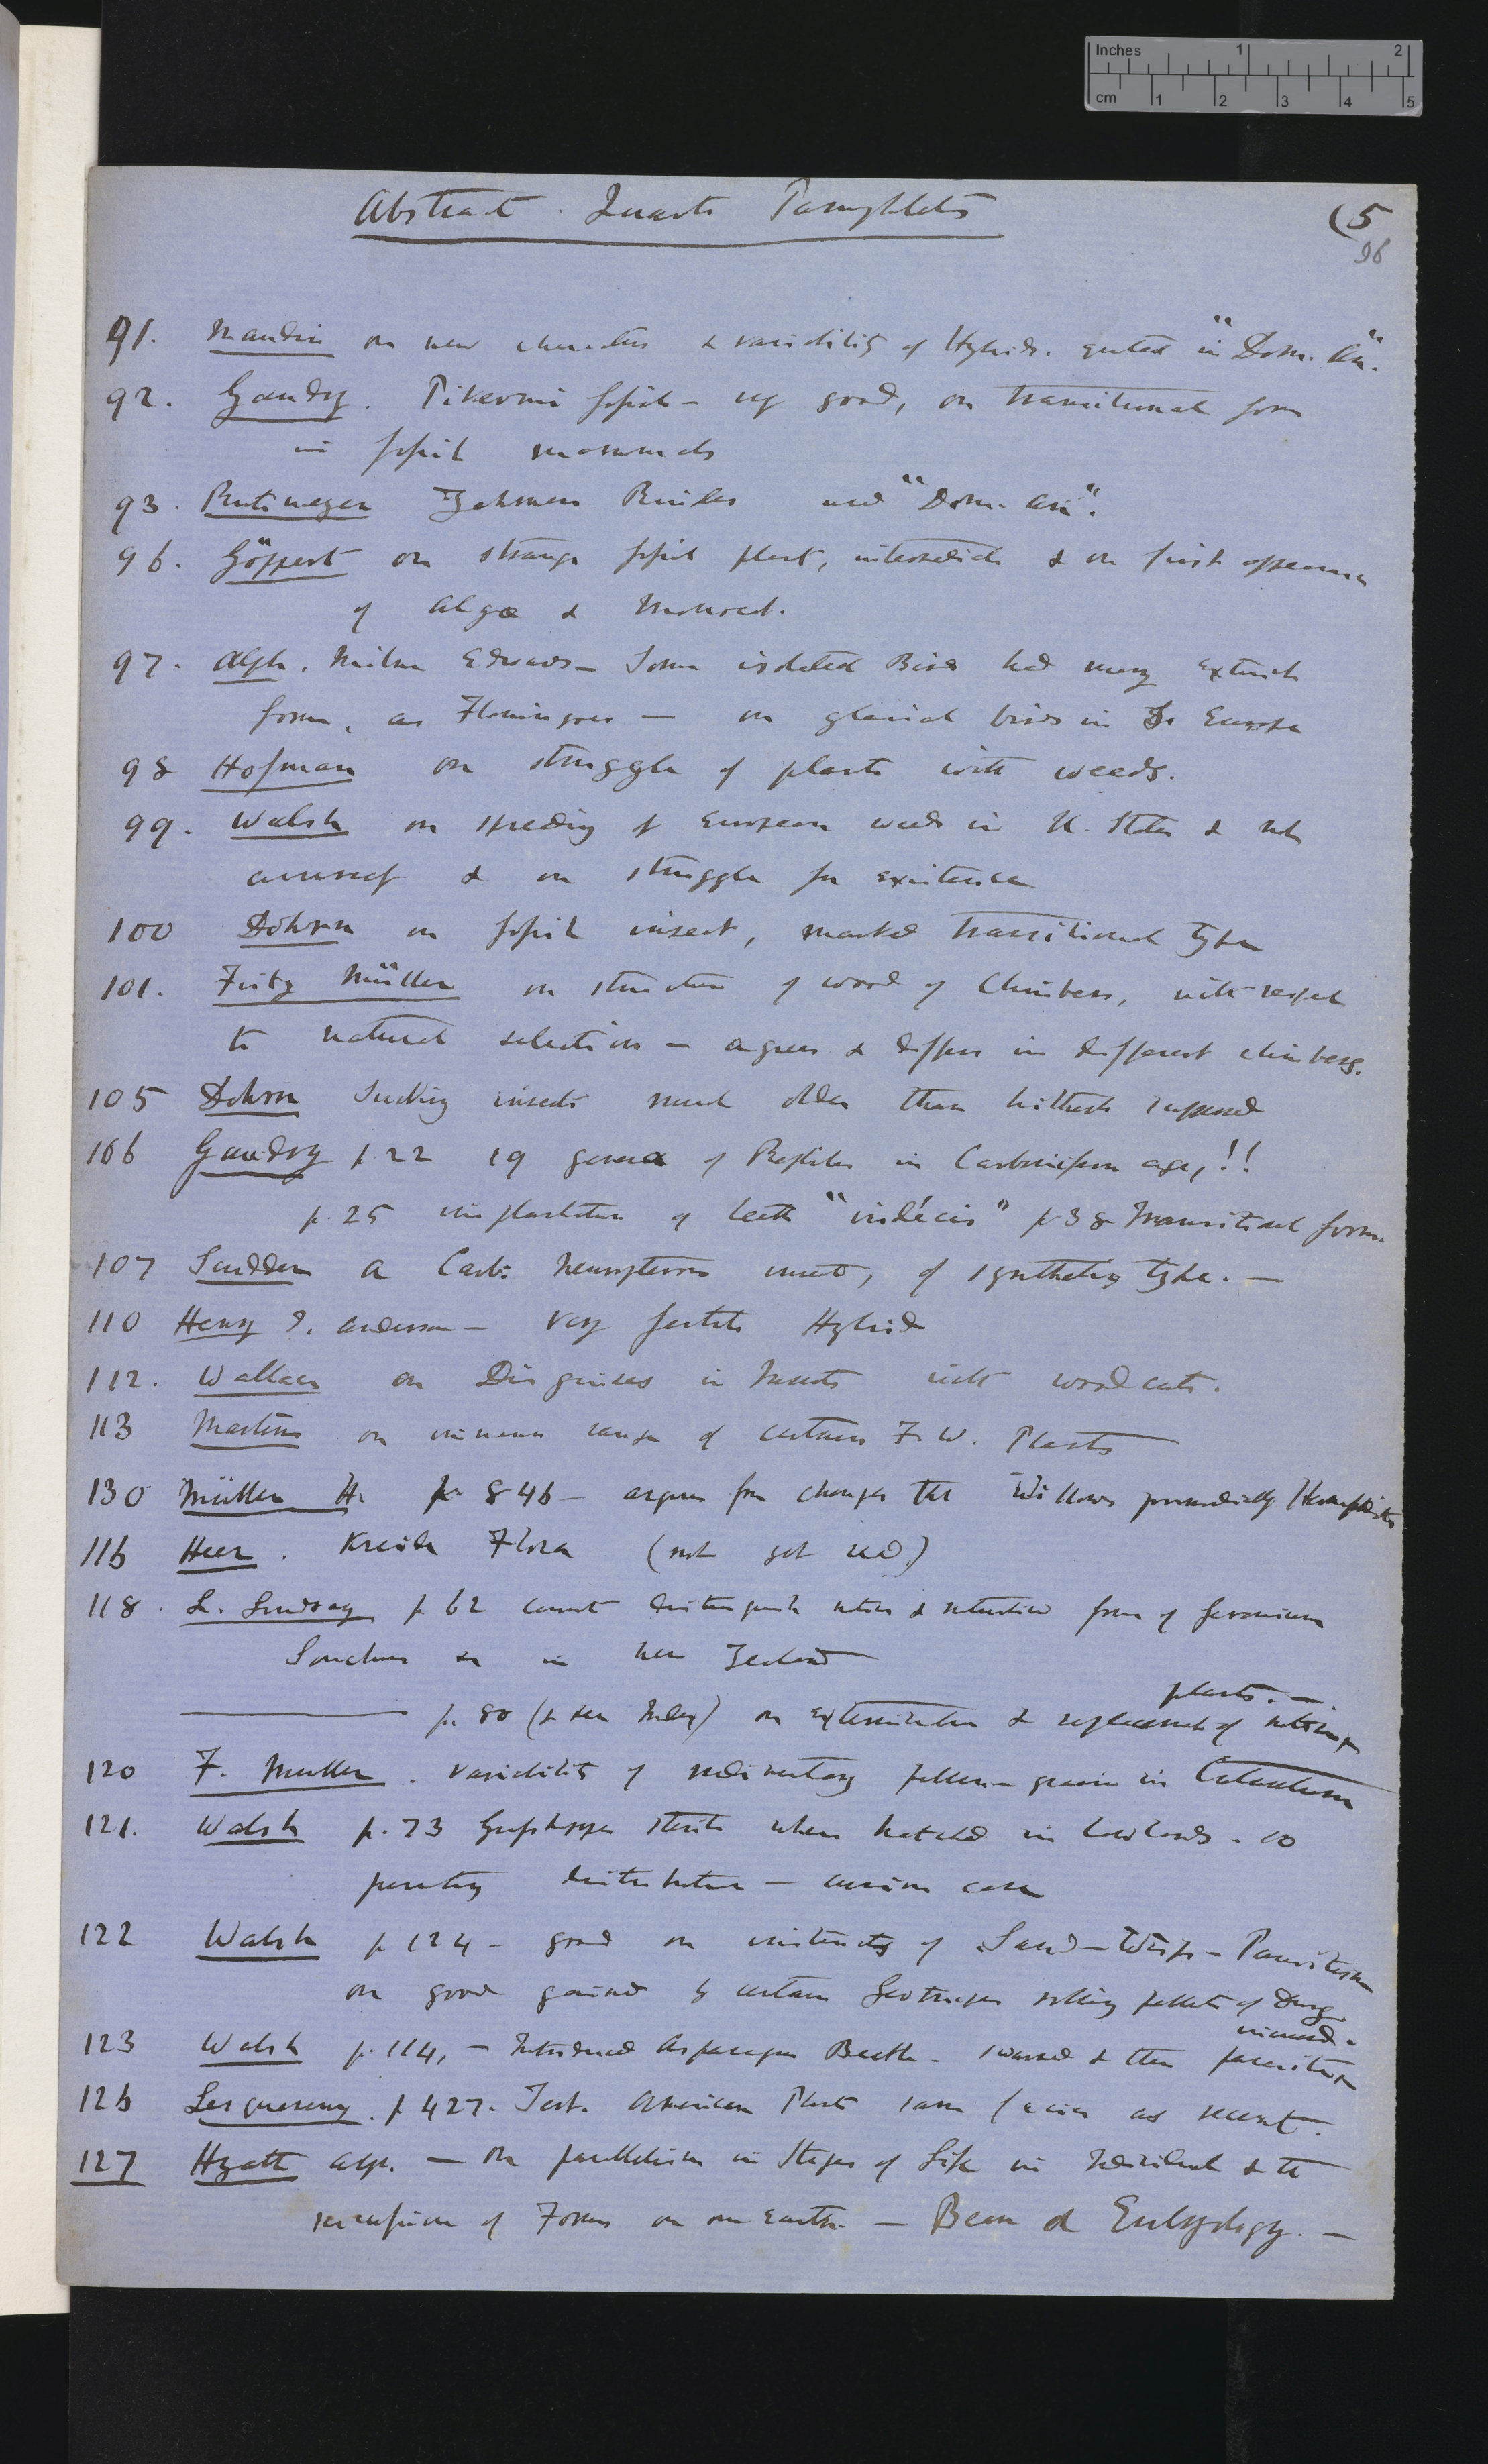 Inches 1 2
cm 1 2 3 4 5
Abstract. Quarto Pamphlets (5
96
91. Naudin on new characters & variability of Hybrids. quoted in "Dom. An."
92. Gaudry. Pikermi fossils – very good, on transitional forms
in fossil mammals
93. Rutimeyer Zahmen Rindes used "Dom. An".
96. Göppert on strange fossil plant, intermediate & on first appearance
of Algæ & Monocot.
97. Alph. Milne Edwards – Some isolated Birds had many extinct
forms, as Flamingoes — on glacial birds in S. Europe
98 Hofman on struggle of plants with weeds.
99. Walsh on spreading of European weeds in U. States & not
conversely & on struggle for existence
100 Dohrn on fossil insect, marked transitional type
101. Fritz Müller on structure of wood of Climbers, with respect
to natural selection – agrees & differs in different climbers.
105 Dohrn Sucking insects much older than hitherto supposed
106 Gaudry p 22 19 genera of Reptiles in Carboniferous age, !!
p. 25 implantation of teeth "indécis" p 38 Transitional forms.
107 Scudder A Carb: Neuropterous insect, of synthetic type. —
110 Henry I. Anderson — very fertile Hybrid
112. Wallace on Disguises in Insects with wood cuts.
113 Martins on immense range of certain F. W. Plants
130 Müller H. p. 846 – argues from changes that Willows primordially Hermaphrodites
116 Heer. Kreide Flora (not yet read)
118. L. Lindsay p 62 cannot distinguish native & naturalised forms of Geranium
Sonchus &c in New Zealand
p. 80 (& see Index) on extermination & replacement of native plants. —
120 F. Muller. variability of rudimentary pollen-grains in Catasetum
121. Walsh p. 73 Grasshopper sterile when hatched in lowlands – so
preventing distribution — curious case
122 Walsh p 124 – good on instincts of Sand-Wasps – Parasitism
on good gained by certain Geotrupes rolling pellets of Dung
123 Walsh p. 114, – Introduced Asparagus Beetle – swarmed & then parasites increased.
126 Lesquereux. p 427. Tert. American Plants same facies as recent.
127 Hyatt Alp. — On parallelism in Stages of Life in Individual & the
succession of Forms on our Earth. — Bears on Embryology. —